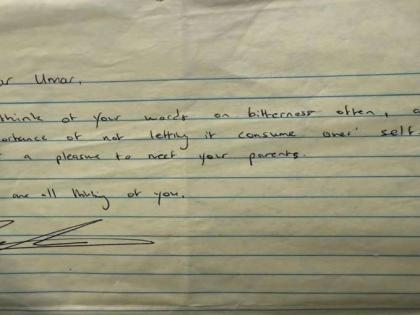 ar Umar,
think of your words on bitterness often, a
ortance of not letting it consume ones' self.
a pleasure to meet your parents.
are all thinking of you.